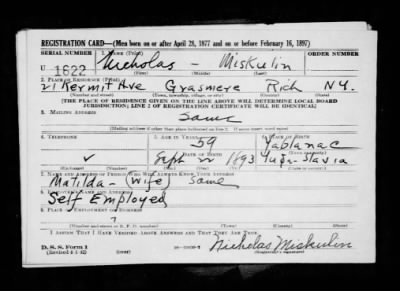 REGISTRATION CARD—(Men born on or after April 28, 1877 and on or before February 16, 1897)
SERIAL NUMBER 1. NAME (Print) ORDER NUMBER
U 1622 Nicholas - Miskulin
(First) (Middle) (Last)
2. PLACE OF RESIDENCE (Print)
21 Kermit Ave Grasmere Rich N.Y.
(Number and street) (Town, township, village, or city) (County) (State)
[THE PLACE OF RESIDENCE GIVEN ON THE LINE ABOVE WILL DETERMINE LOCAL BOARD
JURISDICTION; LINE 2 OF REGISTRATION CERTIFICATE WILL BE IDENTICAL]
3. MAILING ADDRESS
Same
[Mailing address if other than place indicated on line 2. If same insert word same]
4. TELEPHONE 5. AGE IN YEARS 6. PLACE OF BIRTH
59 Jablanac
DATE OF BIRTH
Sept 22 1893 Yugo-Slavia
(Exchange) (Number) (Mo.) (Day) (Yr.) (State or country)
7. NAME AND ADDRESS OF PERSON WHO WILL ALWAYS KNOW YOUR ADDRESS
Matilda - (Wife) Same
8. EMPLOYER'S NAME AND ADDRESS
Self Employed
9. PLACE OF EMPLOYMENT OR BUSINESS
(Number and street or R. F. D. number) (Town) (County) (State)
I AFFIRM THAT I HAVE VERIFIED ABOVE ANSWERS AND THAT THEY ARE TRUE.
D. S. S. Form 1
(Revised 4-1-42)
Nicholas Miskulin
(Registrant's signature)